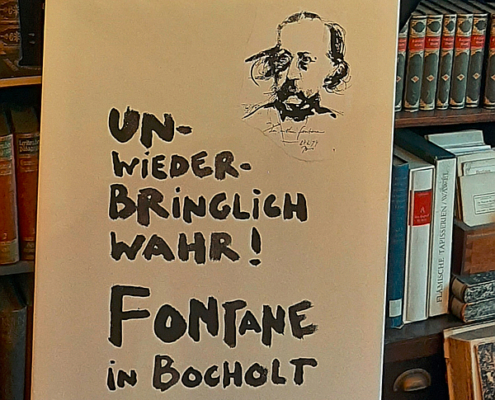 UN-
WIEDER-
BRINGLICH
WAHR!
FONTANE
in BOCHOLT
FLÄMISCHE TAPISSERIEN/WAWEL